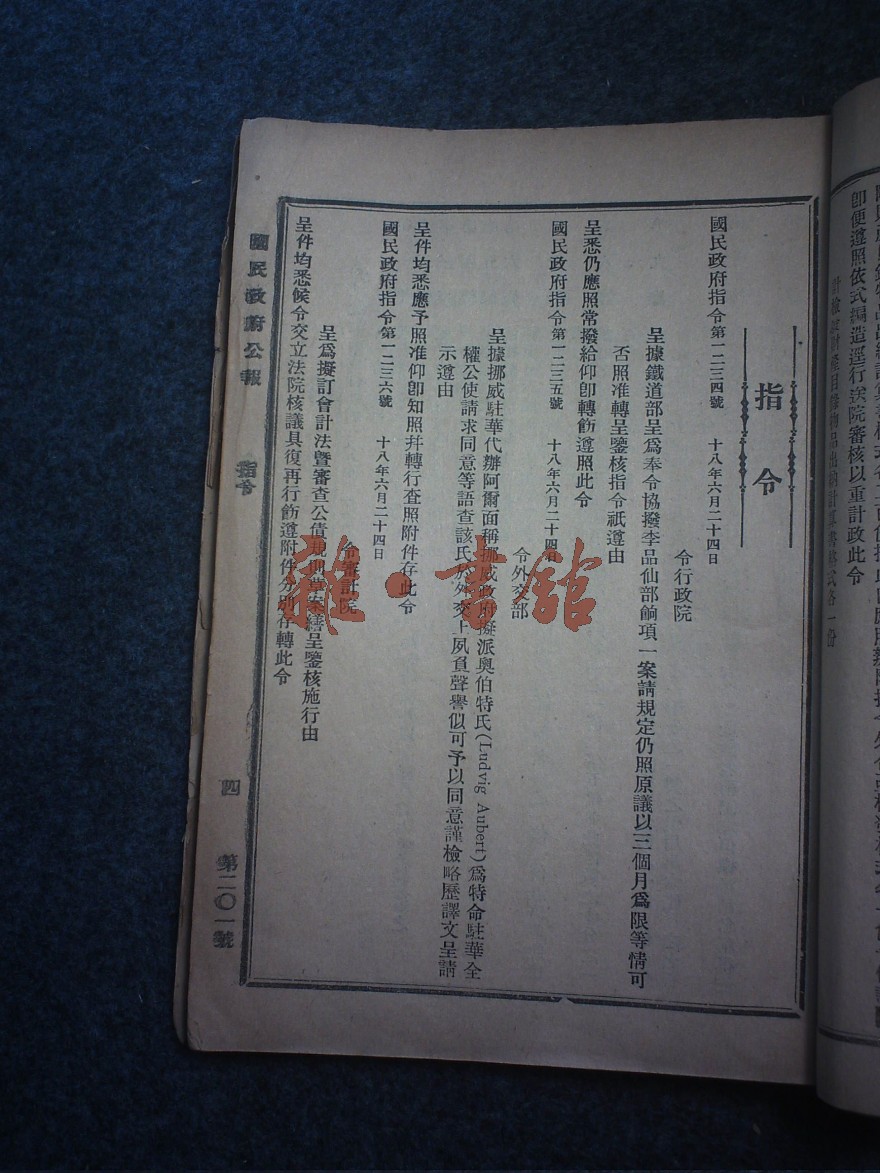 即便遵照依式編造逕行送院審核以重計政此令
指令
國民政府指令第一二三四號 十八年六月二十四日
令行政院
呈據鐵道部呈爲奉令協撥李品仙部餉項一案請規定仍照原議以三個月爲限等情可
否照准轉呈鑒核指令祇遵由
呈悉仍應照常撥給仰卽轉飭遵照此令
國民政府指令第一二三五號 十八年六月二十四日
令外交部
呈據挪威駐華代辦阿爾面稱挪威政府擬派奥伯特氏(Ludvig Aubert)爲特命駐華全
權公使請求同意等語查該氏於外交上夙負聲譽似可予以同意謹檢略歷譯文呈請
示遵由
呈件均悉應予照准仰卽知照幷轉行查照附件存此令
國民政府指令第一二三六號 十八年六月二十四日
令審計院
呈爲擬訂會計法曁審查公債規則草案繕呈鑒核施行由
呈件均悉候令交立法院核議具復再行飭遵附件分別存轉此令
國民政府公報 指令 四 第二〇一號
雜·書館